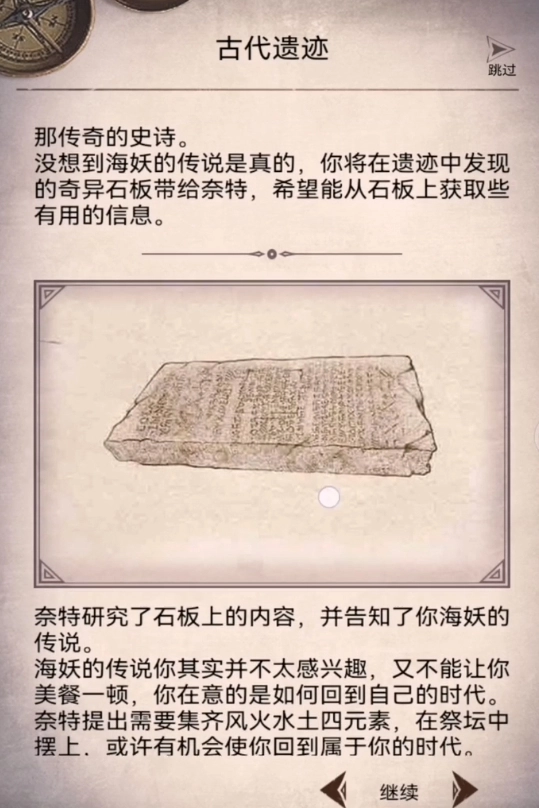 古代遗迹
跳过
那传奇的史诗。
没想到海妖的传说是真的，你将在遗迹中发现
的奇异石板带给奈特，希望能从石板上获取些
有用的信息。
奈特研究了石板上的内容，并告知了你海妖的
传说。
海妖的传说你其实并不太感兴趣，又不能让你
美餐一顿，你在意的是如何回到自己的时代。
奈特提出需要集齐风火水土四元素，在祭坛中
摆上，或许有机会使你回到属于你的时代。
继续